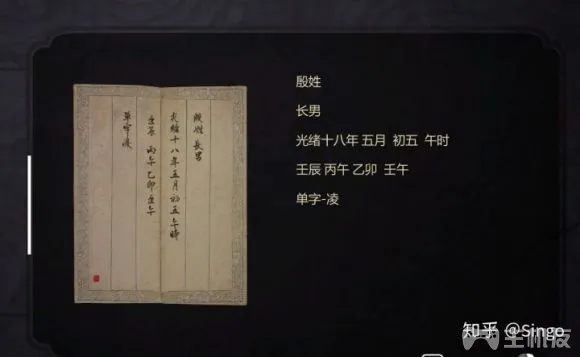 殷姓 長男
光緒十八年五月初五午時
壬辰 丙午 乙卯 壬午
單字凌
殷姓
长男
光绪十八年 五月 初五 午时
壬辰 丙午 乙卯 壬午
单字-凌
知乎 @Singo
主机友